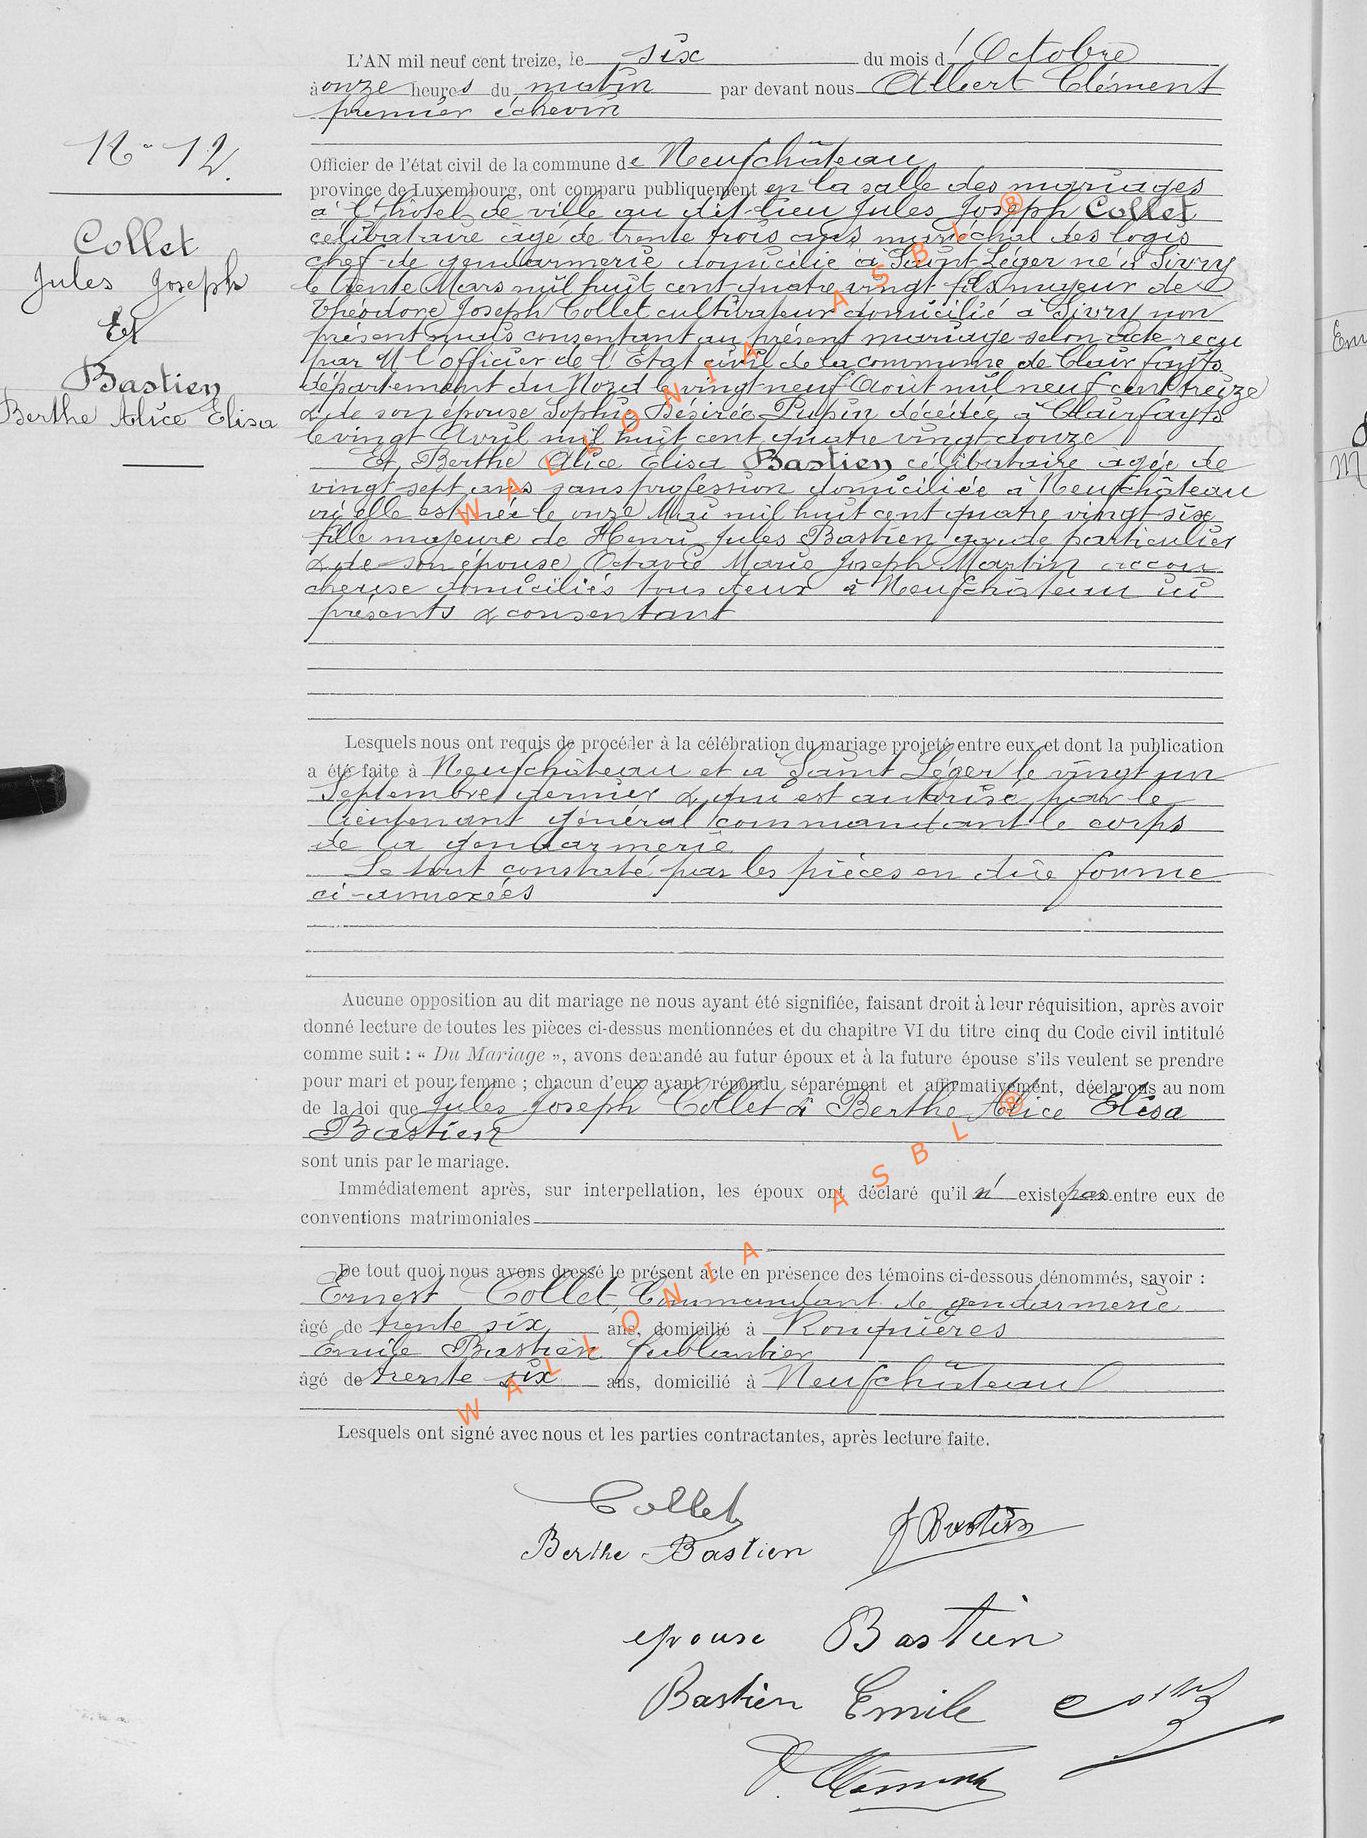 L'AN mil neuf cent treize, le six du mois d'Octobre
à onze heures du matin par devant nous Albert Clément
premier échevin
N° 12.
Officier de l'état civil de la commune de Neufchâteau
province de Luxembourg, ont comparu publiquement en la salle des mariages
à l'hôtel de ville au dit lieu Jules Joseph Collet
célibataire âgé de trente trois ans maréchal des logis
chef de gendarmerie domicilié à Saint Léger né à Sivry
le trente Mars mil huit cent quatre vingt fils majeur de
Théodore Joseph Collet cultivateur domicilié à Sivry non
présent mais consentant au présent mariage selon acte reçu
par M l'officier de l'État civil de la commune de Clairfayts
département du Nord le vingt neuf Août mil neuf cent treize
& de son épouse Sophie Désirée Pupin décédée à Clairfayts
le vingt Avril mil huit cent quatre vingt douze
Et Berthe Alice Elisa Bastien célibataire âgée de
vingt sept ans sans profession domiciliée à Neufchâteau
où elle est née le onze Mai mil huit cent quatre vingt six
fille majeure de Henri Jules Bastien garde particulier
& de son épouse Octavie Marie Joseph Martin accou
cheuse domiciliés tous deux à Neufchâteau ici
présents & consentant
Collet
Jules Joseph
Et
Bastien
Berthe Alice Elisa
Lesquels nous ont requis de procéder à la célébration du mariage projeté entre eux et dont la publication
a été faite à Neufchâteau et à Saint Léger le vingt un
Septembre dernier & qui est autorisé par le
lieutenant général commandant le corps
de la gendarmerie
Le tout constaté par les pièces en due forme
ci-annexées
Aucune opposition au dit mariage ne nous ayant été signifiée, faisant droit à leur réquisition, après avoir
donné lecture de toutes les pièces ci-dessus mentionnées et du chapitre VI du titre cinq du Code civil intitulé
comme suit : « Du Mariage », avons demandé au futur époux et à la future épouse s'ils veulent se prendre
pour mari et pour femme ; chacun d'eux ayant répondu séparément et affirmativement, déclarons au nom
de la loi que Jules Joseph Collet & Berthe Alice Elisa
Bastien
sont unis par le mariage.
Immédiatement après, sur interpellation, les époux ont déclaré qu'il n'existe pas entre eux de
conventions matrimoniales
De tout quoi nous avons dressé le présent acte en présence des témoins ci-dessous dénommés, savoir :
Ernest Collet, Commandant de gendarmerie
âgé de trente six ans, domicilié à Ronquières
Emile Bastien ferblantier
âgé de trente six ans, domicilié à Neufchâteau
Lesquels ont signé avec nous et les parties contractantes, après lecture faite.
Collet
Berthe Bastien
J Bastien
epouse Bastien
Bastien Emile
Clément
WALLONIA ASBL ®
WALLONIA ASBL ®